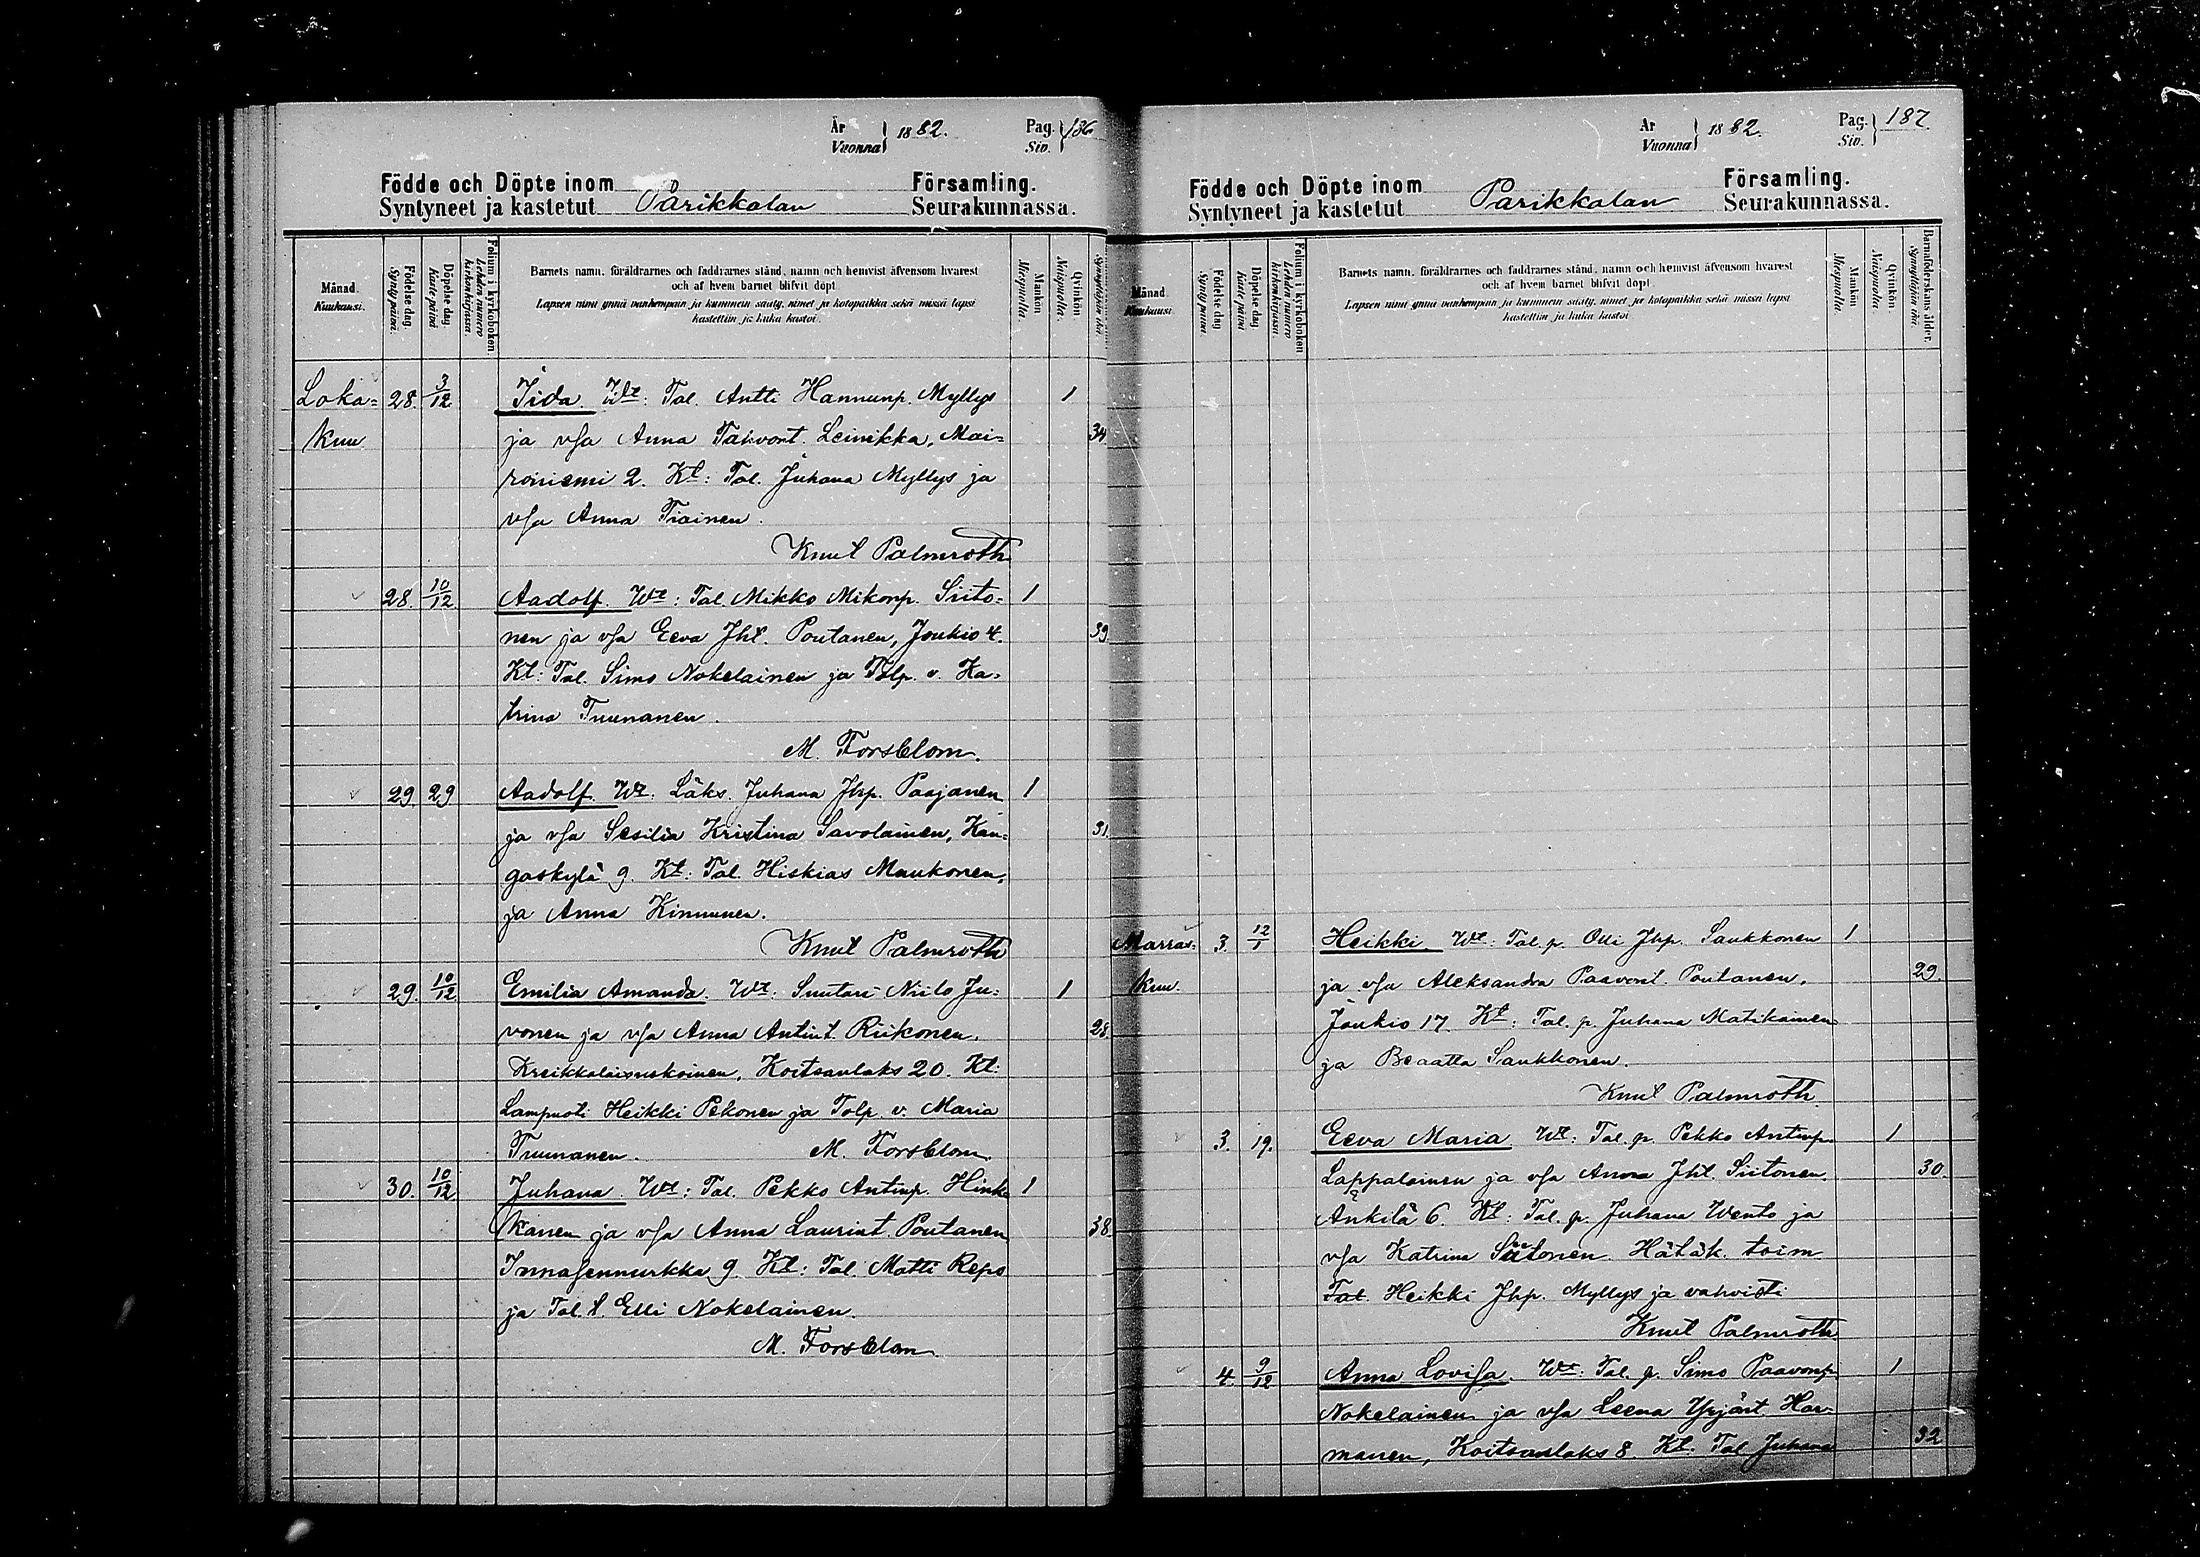 År
Vuonna } 1882.
Pag.
Siv. } 136
Födde och Döpte inom Parikkalan Församling.
Syntyneet ja kastetut Seurakunnassa.
Månad.
Kuukausi.
Födelse dag
Syntypäivä.
Döpelse dag
Kastepäivä
Folium i kyrkoboken.
Lehden numero
kirkonkirjassa.
Barnets namn, föräldrarnes och faddrarnes stånd, namn och hemvist äfvensom hvarest
och af hvem barnet blifvit döpt.
Lapsen nimi ynnä vanhempain ja kummein sääty, nimet ja kotopaikka sekä missä lapsi
kastettiin ja kuka kastoi.
Mankön
Miespuolia.
Qvinkön
Naispuolia.
Loka= 28. 3/12 Iida. Wt: Tal. Antti Hannunp. Myllys 1
kuu ja vsa Anna Tahvont. Leinikka, Mai= 34
roniemi 2. Kt: Tal. Juhana Myllys ja
vsa Anna Tiainen.
Knut Palmroth
28. 10/12 Aadolf. Wt: Tal. Mikko Mikonp. Siito= 1
nen ja vsa Eeva Jht. Poutanen, Joukio 4. 39
Kt: Tal. Simo Nokelainen ja Tolp. v. Ka=
trina Tuunanen.
M. Forsblom.
29 29 Aadolf. Wt: Läks. Juhana Jhp. Paajanen 1
ja vsa Sesilia Kristina Savolainen, Kan= 31.
gaskylä 9. Kt: Tal. Hiskias Muukonen,
ja Anna Kinnunen.
Knut Palmroth
29. 10/12 Emilia Amanda. Wt: Suutari Niilo Ju= 1
vonen ja vsa Anna Antint. Riikonen. 28.
Kreikkalaisuskoinen, Koitsanlaks 20. Kt:
Lampuoti Heikki Pekonen ja Tolp. v. Maria
Tuunanen. M. Forsblom
30. 10/12 Juhana. Wt: Tal. Pekko Antinp. Hink= 1
kanen ja vsa Anna Laurint. Poutanen 38.
Innasennurkka 9. Kt: Tal. Matti Repo
ja Tal. t. Elli Nokelainen.
M. Forsblom
År
Vuonna } 1882.
Pag.
Siv. } 187.
Födde och Döpte inom Parikkalan Församling.
Syntyneet ja kastetut Seurakunnassa.
Månad.
Kuukausi.
Födelse dag
Syntypäivä.
Döpelse dag
Kastepäivä
Folium i kyrkoboken
Lehden numero
kirkonkirjassa.
Barnets namn, föräldrarnes och faddrarnes stånd, namn och hemvist äfvensom hvarest
och af hvem barnet blifvit döpt.
Lapsen nimi ynnä vanhempain ja kummein sääty, nimet ja kotopaikka sekä missä lapsi
kastettiin ja kuka kastoi.
Mankön
Miespuolia.
Qvinkön.
Naispuolia.
Barnaföderskans ålder.
Synnyttäjän ikä.
Marras= 3. 12/1 Heikki. Wt: Tal. p. Olli Jhp. Saukkonen 1
kuu. ja vsa Aleksandra Paavont. Poutanen, 29.
Joukio 17. Kt: Tal. p. Juhana Matikainen
ja Beaatta Saukkonen.
Knut Palmroth.
3. 19. Eeva Maria. Wt: Tal. p. Pekko Antinp. 1
Lappalainen ja vsa Anna Jht. Siitonen. 30.
Ankilä 6. Kt: Tal. p. Juhana Wento ja
vsa Katrina Siitonen. Hätäk. toim.
Tal. Heikki Jhp. Myllys ja vahvisti
Knut Palmroth
4. 9/12 Anna Lovisa. Wt: Tal. p. Simo Paavonp. 1
Nokelainen ja vsa Leena Yrjänt. Har=
manen, Koitsanlaks 8. Kt: Tal. Juhana 32